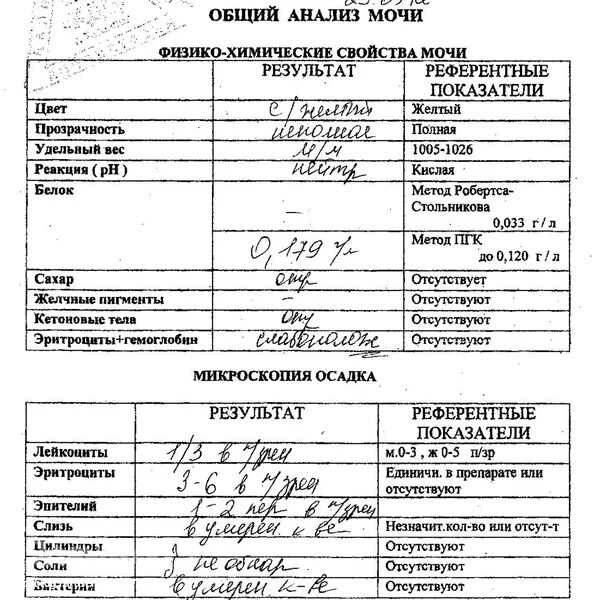 ОБЩИЙ АНАЛИЗ МОЧИ
ФИЗИКО-ХИМИЧЕСКИЕ СВОЙСТВА МОЧИ
РЕЗУЛЬТАТ РЕФЕРЕНТНЫЕ
ПОКАЗАТЕЛИ
Цвет с/желтый Желтый
Прозрачность неполная Полная
Удельный вес м/м 1005-1026
Реакция ( pH ) нейтр Кислая
Белок – Метод Робертса-
Стольникова
0,033 г / л
0,179 г/л Метод ПГК
до 0,120 г / л
Сахар отр Отсутствует
Желчные пигменты – Отсутствуют
Кетоновые тела отр Отсутствуют
Эритроциты+гемоглобин слабополож Отсутствуют
МИКРОСКОПИЯ ОСАДКА
РЕЗУЛЬТАТ РЕФЕРЕНТНЫЕ
ПОКАЗАТЕЛИ
Лейкоциты 1/3 в п/зрен м.0-3 , ж 0-5 п/зр
Эритроциты 3-6 в п/зрен Единичн. в препарате или
отсутствуют
Эпителий 1-2 пер в п/зрен
Слизь в умерен к-ве Незначит.кол-во или отсут-т
Цилиндры Отсутствуют
Соли не обнар Отсутствуют
Бактерии в умерен к-ве Отсутствуют